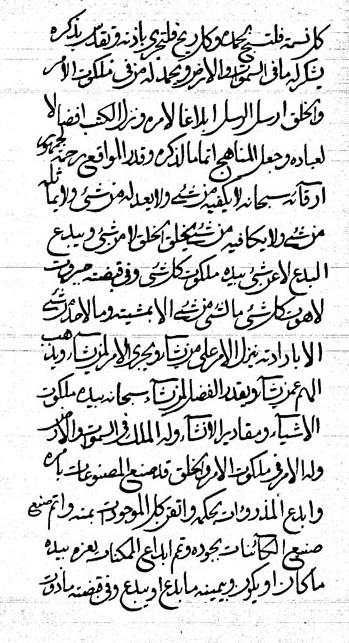 كل نسمة فلتسبح بحمده وكل ريح فلتجري باذنه وتقدس بذكره
يشكر له ما في السموات والارض ويحمد له من في ملكوت الامر
والخلق ارسل الرسل ابلاغا لامره ونزل الكتب افضالا
لعباده وجعل المناهج اتماما لذكره وقدر المواقع
سبحانه لا يكفيه من شيء ولا يعدله من شيء ولا يماثله
من شيء ولا يكافيه من شيء يخلق الخلق لا من شيء ويبدع
البدع لا عن شيء بيده ملكوت كل شيء وفي قبضته جبروت
لاهوت كل شيء ما لشيء من شيء الا بمشيته وما لاحد من شيء
الا بارادته ينزل الامر على من يشاء ويجري الامر لمن يشاء ويذهب
عمن يشاء ويقدر الفضل لمن يشاء سبحانه بيده ملكوت
الاشياء ومقادير الانشاء وله الملك في السموات والارض
وله الامر في ملكوت الامر والخلق قد صنع المصنوعات بامره
وابدع المذروءات بحكمه واتقن كل الموجودات بمنه واتم صنع
صنع الكائنات بجوده وتم ابداع الممكنات بعزه بيده
ما كان او يكون وبيمينه ما ابدع او يبدع وفي قبضته ما ذوت